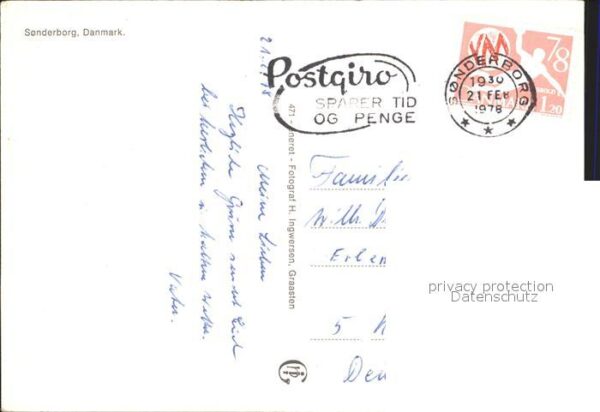 Sønderborg, Danmark.
21.2.78
Meine Lieben
Herzliche Grüße sendet Euch
bei herrlichem u. kaltem Wetter
Vater.
471 - Fotograf H. Ingwersen, Graasten
Postgiro
SPARER TID
OG PENGE
SØNDERBORG
1930
21 FEB
1978
VM
78
120
Familie
Willi
Erlen
5 K
Deu
privacy protection
Datenschutz